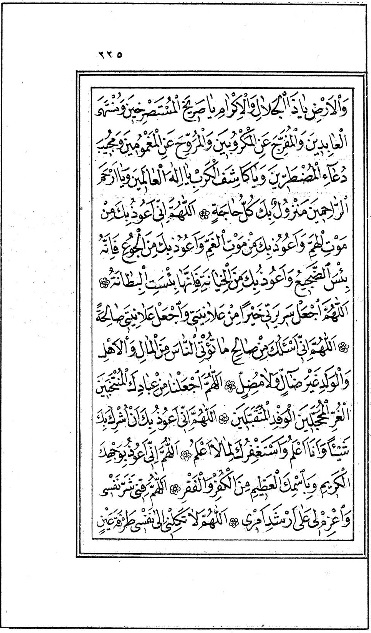 ٢٢٥
وَالْاَرْضِ يَا ذَا الْجَلَالِ وَالْاِكْرَامِ يَا صَرِيخَ الْمُسْتَصْرِخِينَ وَمُنْتَهَى
الْعَابِدِينَ وَالْمُفَرِّجَ عَنِ الْمَكْرُوبِينَ وَالْمُرَوِّحَ عَنِ الْمَغْمُومِينَ وَمُجِيبَ
دُعَآءِ الْمُضْطَرِّينَ وَيَا كَاشِفَ الْكَرْبِ يَا اِلٰهَ الْعَالَمِينَ وَيَا اَرْحَمَ
الرَّاحِمِينَ مَنْزُولٌ بِكَ كُلُّ حَاجَةٍ ۞ اَللّٰهُمَّ اِنِّى اَعُوذُ بِكَ مِنْ
مَوْتِ الْهَمِّ وَاَعُوذُ بِكَ مِنْ مَوْتِ الْغَمِّ وَاَعُوذُ بِكَ مِنَ الْجُوعِ فَاِنَّهُ
بِئْسَ الضَّجِيعُ وَاَعُوذُ بِكَ مِنَ الْخِيَانَةِ فَاِنَّهَا بِئْسَتِ الْبِطَانَةُ ۞
اَللّٰهُمَّ اجْعَلْ سَرِيرَتِى خَيْرًا مِنْ عَلَانِيَتِى وَاجْعَلْ عَلَانِيَتِى صَالِحَةً
۞ اَللّٰهُمَّ اِنِّى اَسْئَلُكَ مِنْ صَالِحِ مَا تُؤْتِى النَّاسَ مِنَ الْمَالِ وَالْاَهْلِ
وَالْوَلَدِ غَيْرِ ضَالٍّ وَلَا مُضِلٍّ ۞ اَللّٰهُمَّ اجْعَلْنَا مِنْ عِبَادِكَ الْمُنْتَخَبِينَ
الْغُرِّ الْمُحَجَّلِينَ الْوَفْدِ الْمُتَقَبَّلِينَ ۞ اَللّٰهُمَّ اِنِّى اَعُوذُ بِكَ اَنْ اُشْرِكَ بِكَ
شَيْئًا وَاَنَا اَعْلَمُ وَاَسْتَغْفِرُكَ لِمَا لَا اَعْلَمُ ۞ اَللّٰهُمَّ اِنِّى اَعُوذُ بِوَجْهِكَ
الْكَرِيمِ وَبِاسْمِكَ الْعَظِيمِ مِنَ الْكُفْرِ وَالْفَقْرِ ۞ اَللّٰهُمَّ قِنِى شَرَّ نَفْسِى
وَاعْزِمْ لِى عَلٰى اَرْشَدِ اَمْرِى ۞ اَللّٰهُمَّ لَا تَكِلْنِى اِلٰى نَفْسِى طَرْفَةَ عَيْنٍ